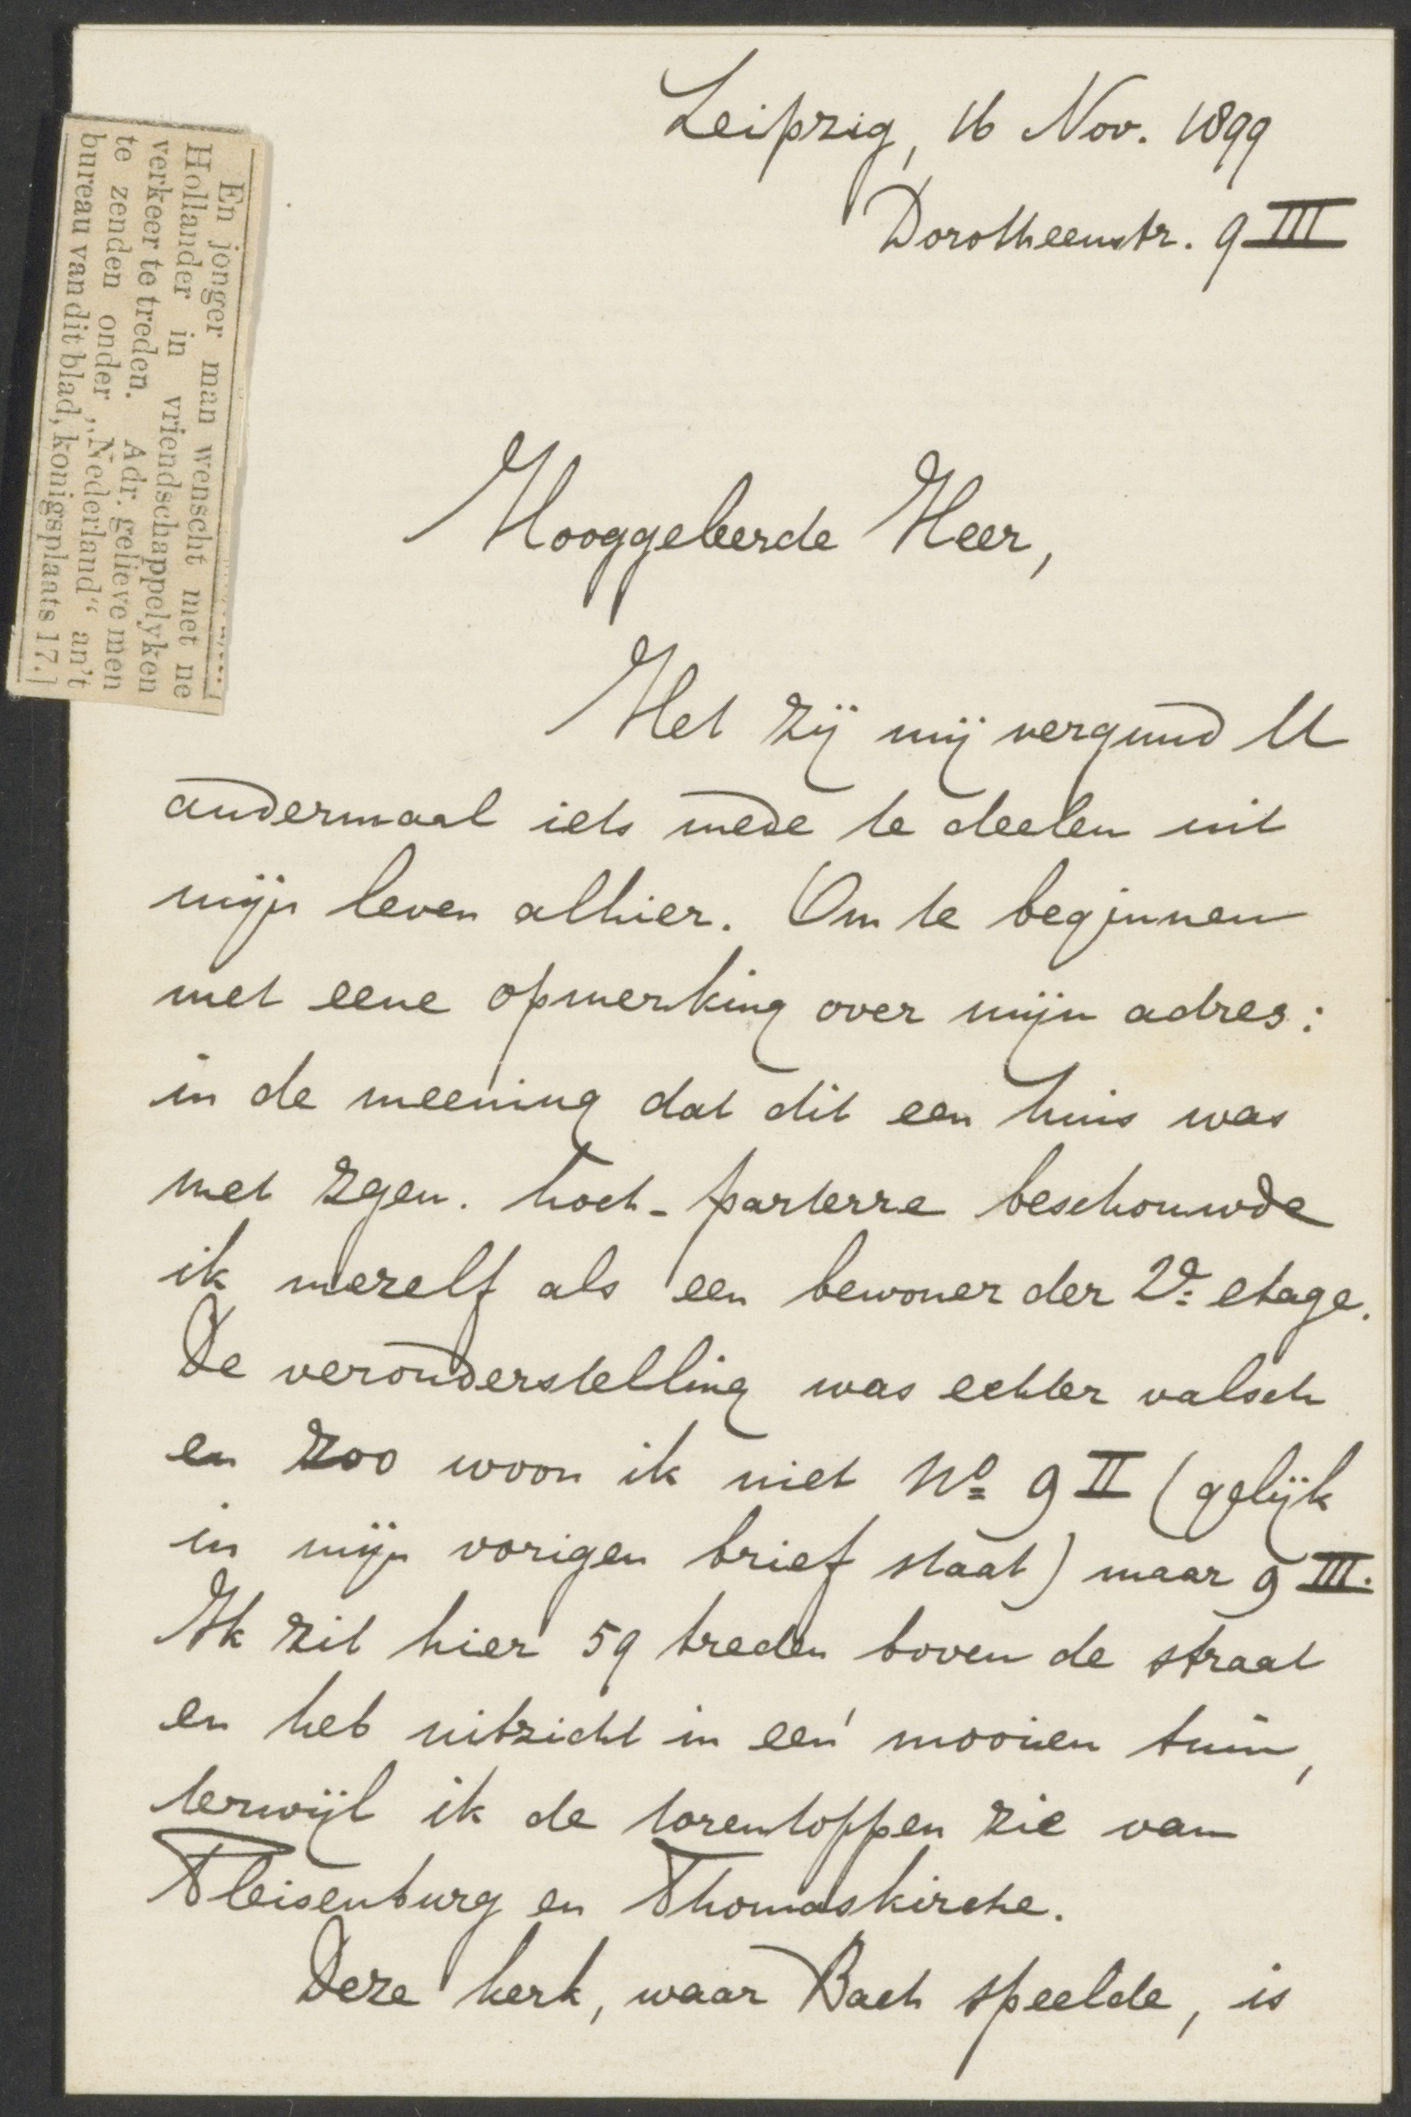 Leipzig, 16 Nov. 1899
Dorotheenstr. 9 III
En jonger man wenscht met ne
Hollander in vriendschappelyken
verkeer te treden. Adr. gelieve men
te zenden onder „Nederland“ an't
bureau van dit blad, konigsplaats 17.]
Hooggeleerde Heer,
Het zij mij vergund U
andermaal iets mede te deelen uit
mijn leven alhier. Om te beginnen
met eene opmerking over mijn adres:
in de meening dat dit een huis was
met zgen. hoch-parterre beschouwde
ik mezelf als een bewoner der 2e etage.
De veronderstelling was echter valsch
en zoo woon ik niet No 9 II (gelijk
in mijn vorigen brief staat) maar 9 III.
Ik zit hier 59 treden boven de straat
en heb uitzicht in een mooien tuin,
terwijl ik de torentoppen zie van
Pleisenburg en Thomaskirche.
Deze kerk, waar Bach speelde, is